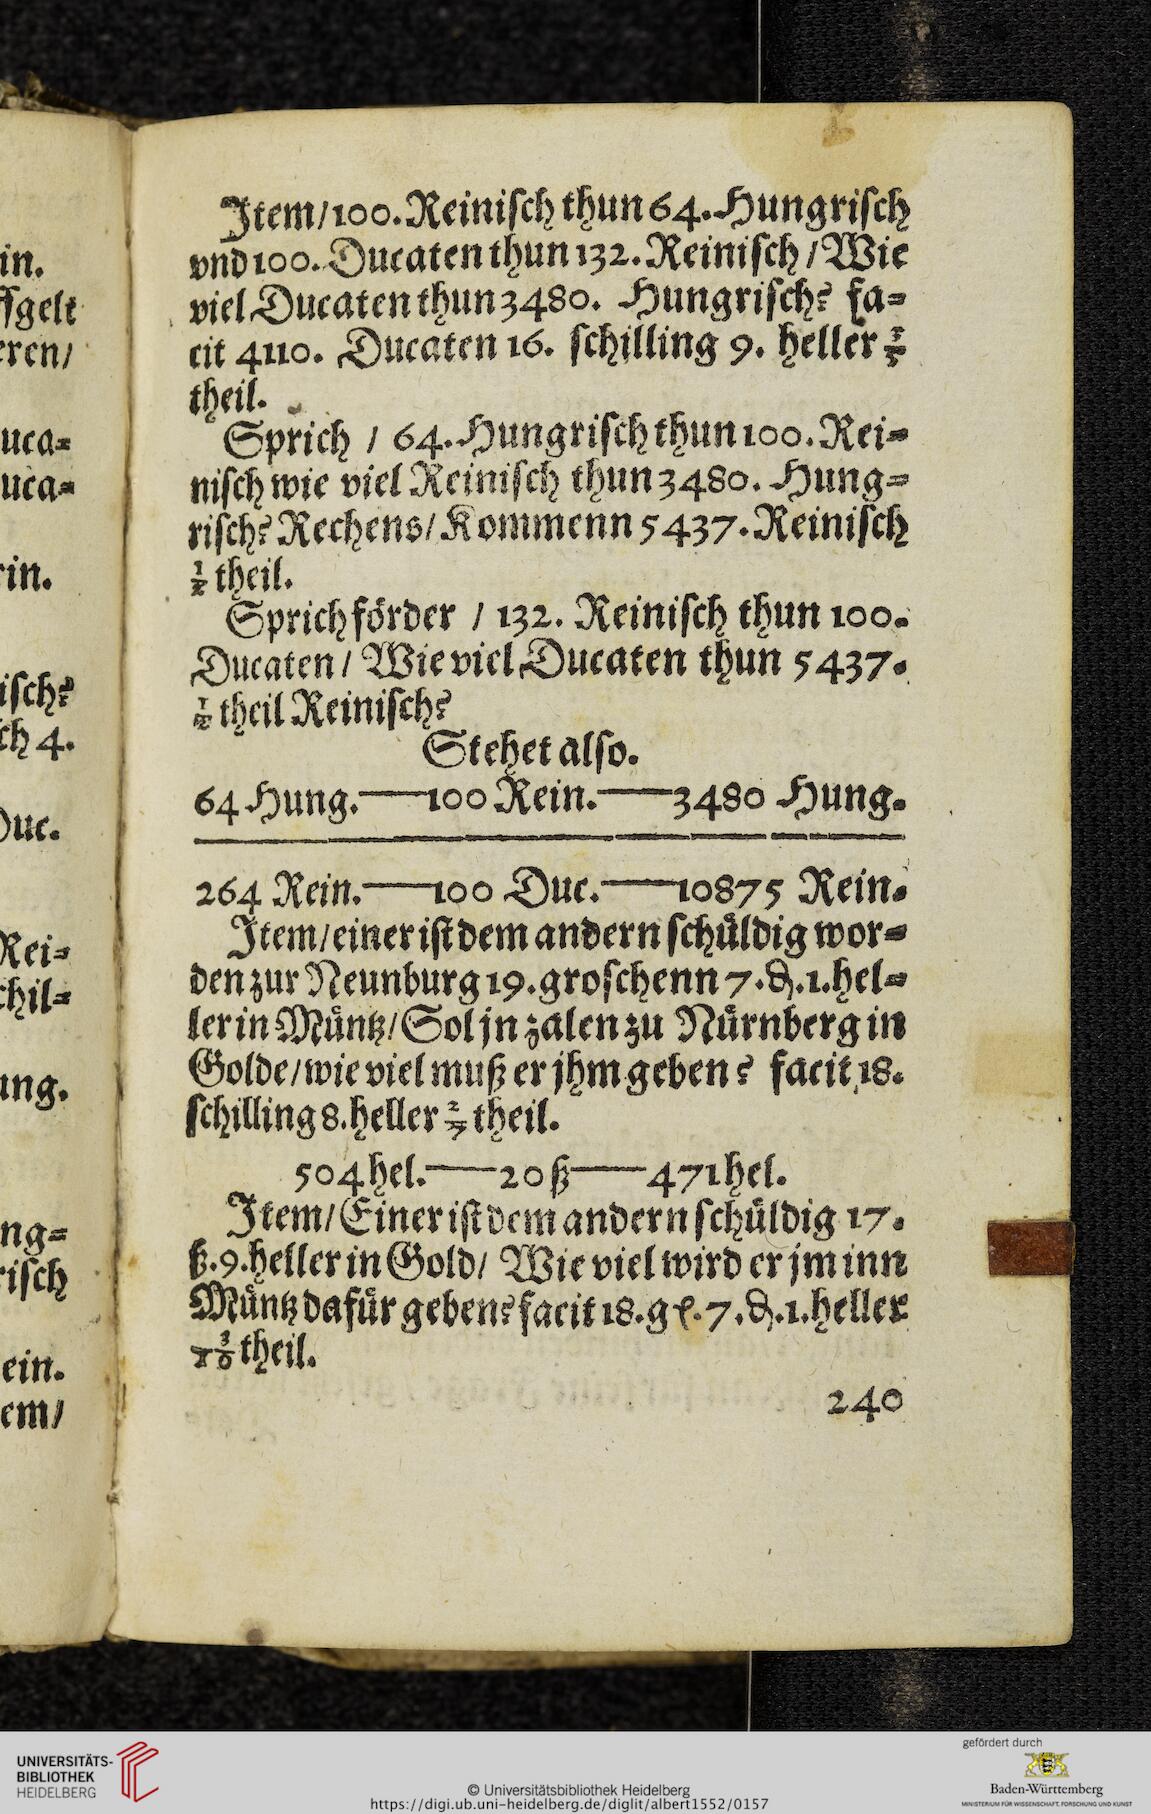 Item/100. Reinisch thun 64. Hungrisch
vnd 100. Ducaten thun 132. Reinisch/ Wie
viel Ducaten thun 3480. Hungrisch? fa=
cit 4110. Ducaten 16. schilling 9. heller
theil.
Sprich / 64. Hungrisch thun 100. Rei=
nisch wie viel Reinisch thun 3480. Hung=
risch? Rechens/ Kommenn 5437. Reinisch
½ theil.
Sprich förder / 132. Reinisch thun 100.
Ducaten/ Wie viel Ducaten thun 5437.
½ theil Reinisch?
Stehet also.
64 Hung.—100 Rein.—3480 Hung.
264 Rein.—100 Duc.—10875 Rein.
Item/ einer ist dem andern schüldig wor=
den zur Neunburg 19. groschenn 7. ₰. 1. hel=
ler in Müntz/ Sol jn zalen zu Nürnberg in
Golde/ wie viel muß er jhm geben? facit 18.
schilling 8. heller 2/7 theil.
504 hel.—20 ß—471 hel.
Item/ Einer ist dem andern schüldig 17.
ß. 9. heller in Gold/ Wie viel wird er jm inn
Müntz dafür geben? facit 18. gl. 7. ₰. 1. heller
3/10 theil.
240
in.
ffgelt
eren/
uca=
uca=
rin.
isch?
ch 4.
Duc.
Rei=
chil=
ung.
ng=
risch
ein.
em/
UNIVERSITÄTS-
BIBLIOTHEK
HEIDELBERG
© Universitätsbibliothek Heidelberg
https://digi.ub.uni-heidelberg.de/diglit/albert1552/0157
gefördert durch
Baden-Württemberg
MINISTERIUM FÜR WISSENSCHAFT, FORSCHUNG UND KUNST